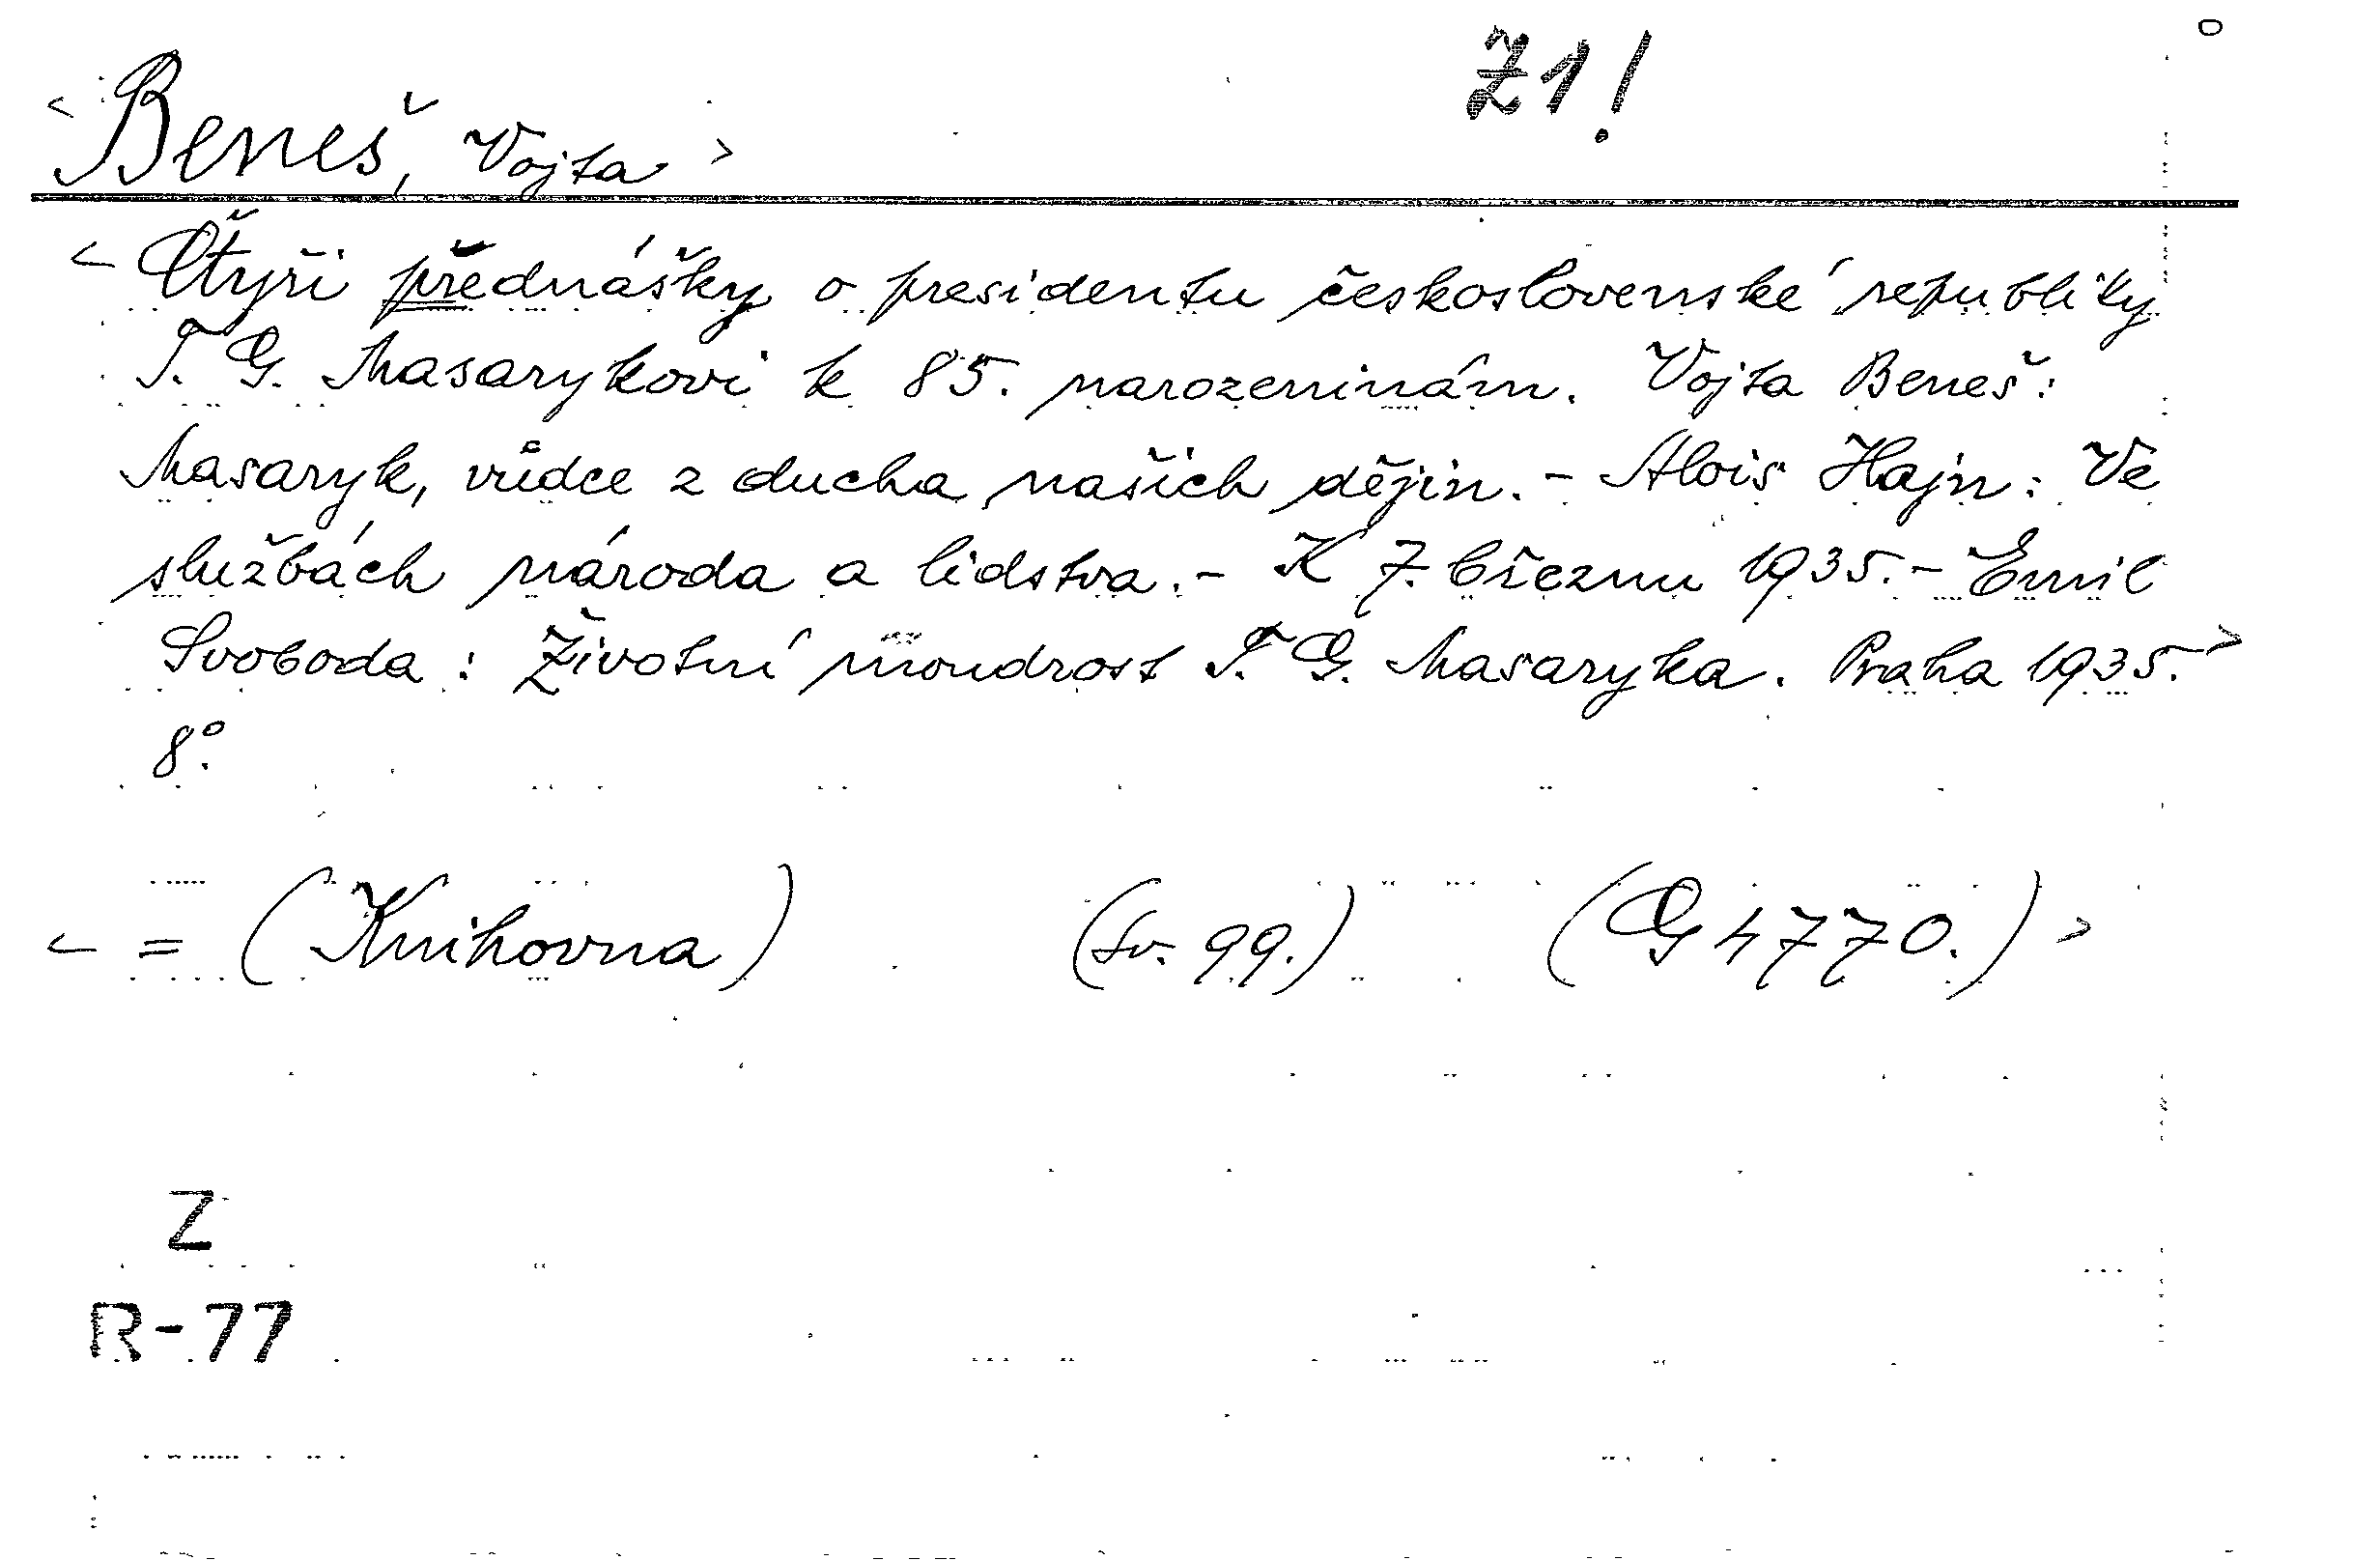 Z1!
<Beneš, Vojta>
<Čtyři přednášky o presidentu československé republiky
T. G. Masarykovi k 85. narozeninám. Vojta Beneš:
Masaryk, vůdce z ducha našich dějin. - Alois Hajn: Ve
službách národa a lidstva. - K 7. březnu 1935. - Emil
Svoboda: Životní moudrost T. G. Masaryka. Praha 1935.>
8°.
< = (Knihovna) (sv. 99.) (G 4770.) >
Z
R-77